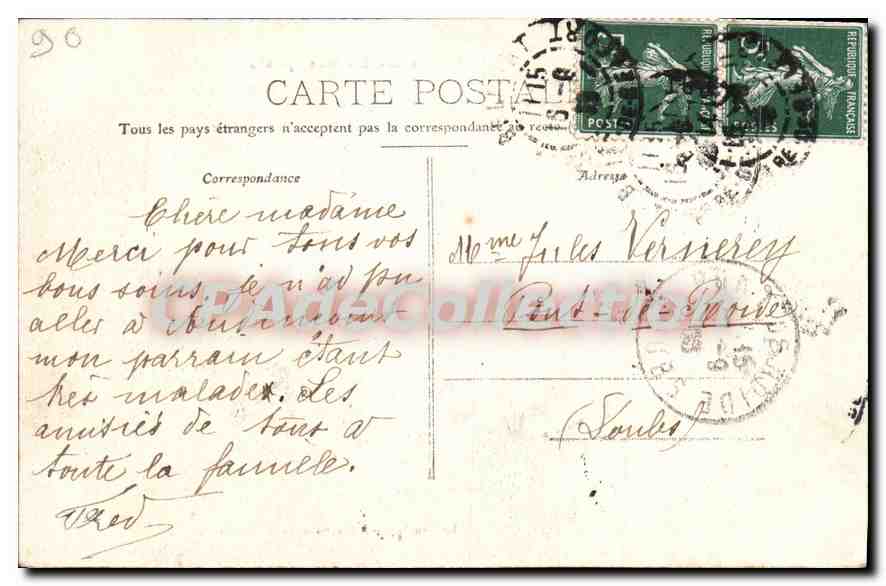 90
CARTE POSTALE
Tous les pays étrangers n'acceptent pas la correspondance au recto
Correspondance
Chère madame
Merci pour tous vos
bons soins, je n'ai pu
aller à Audincourt
mon parrain étant
très malade. Les
amitiés de tous à
toute la famille.
Fred
Adresse
Mme Jules Vernerey
Pont-de-Roide
(Doubs)
REPUBLIQUE FRANÇAISE
POSTES
REPUBLIQUE FRANÇAISE
POSTES
CPAdeCollection